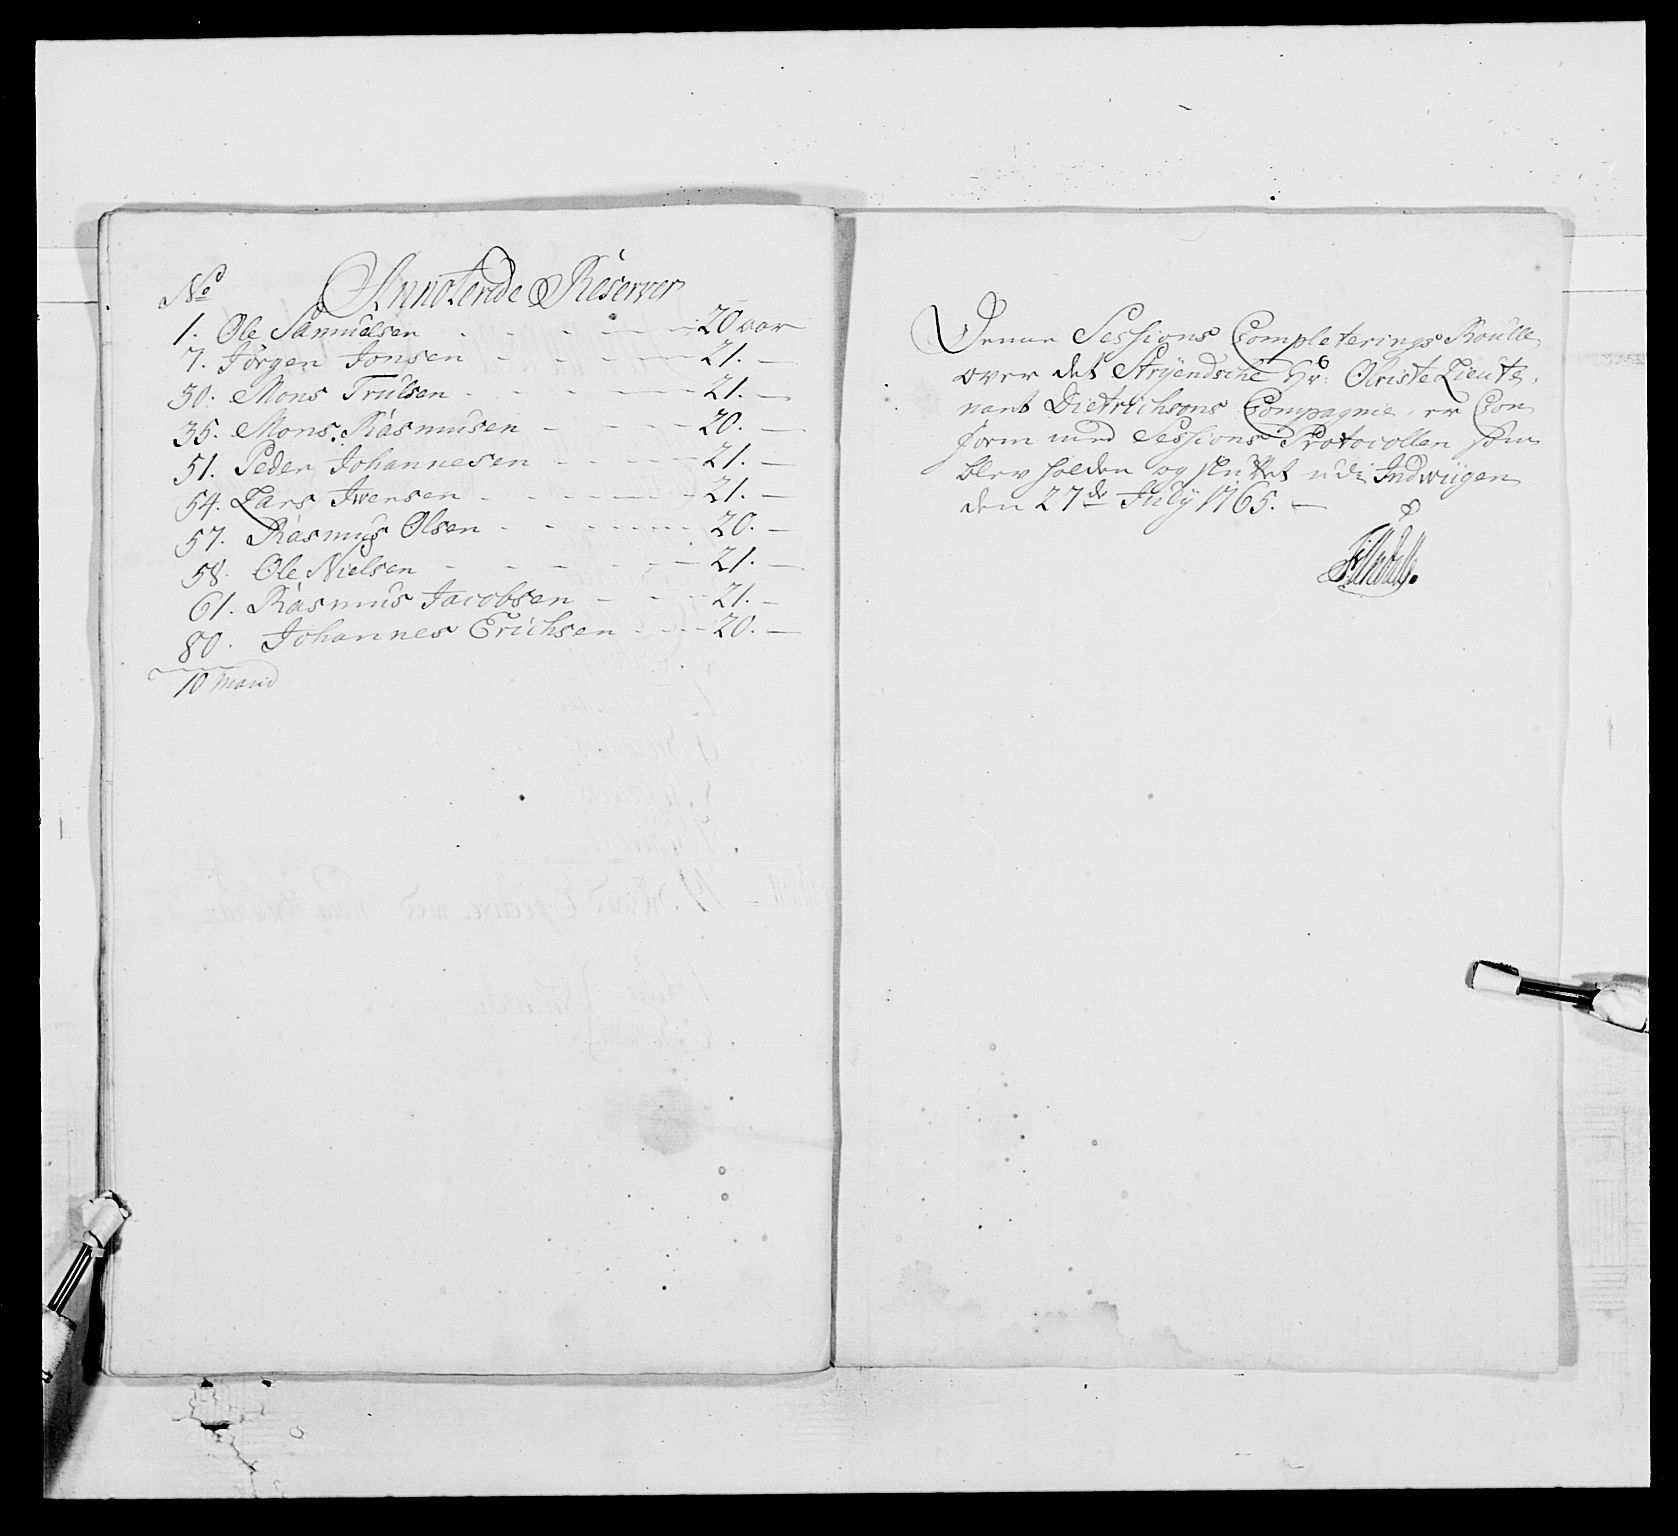 No Annoterede Reserver
1. Ole Samuelsen - - - - - 20 aar
7. Jörgen Jonsen - - - - - 21. —
30. Mons Trulsen - - - - - 21. —
35. Mons Rasmusen - - - - 20. —
51. Peder Johannesen - - - - 21. —
54. Lars Iwersen - - - - - 21. —
57. Rasmus Olsen - - - - - 20. —
58. Ole Nielsen - - - - - 21. —
61. Rasmus Jacobsen - - - 21. —
80. Johannes Erichsen - - - 20. —
10 Mand
Denne Sessions Completerings Roulle
over det Stryendsche Hr: Obriste Lieute
nant Dietrichsons Compagnie, er Con
form med Sessions Protocollen som
blev holden og sluttet udi Indwiigen
den 27de July 1765. —